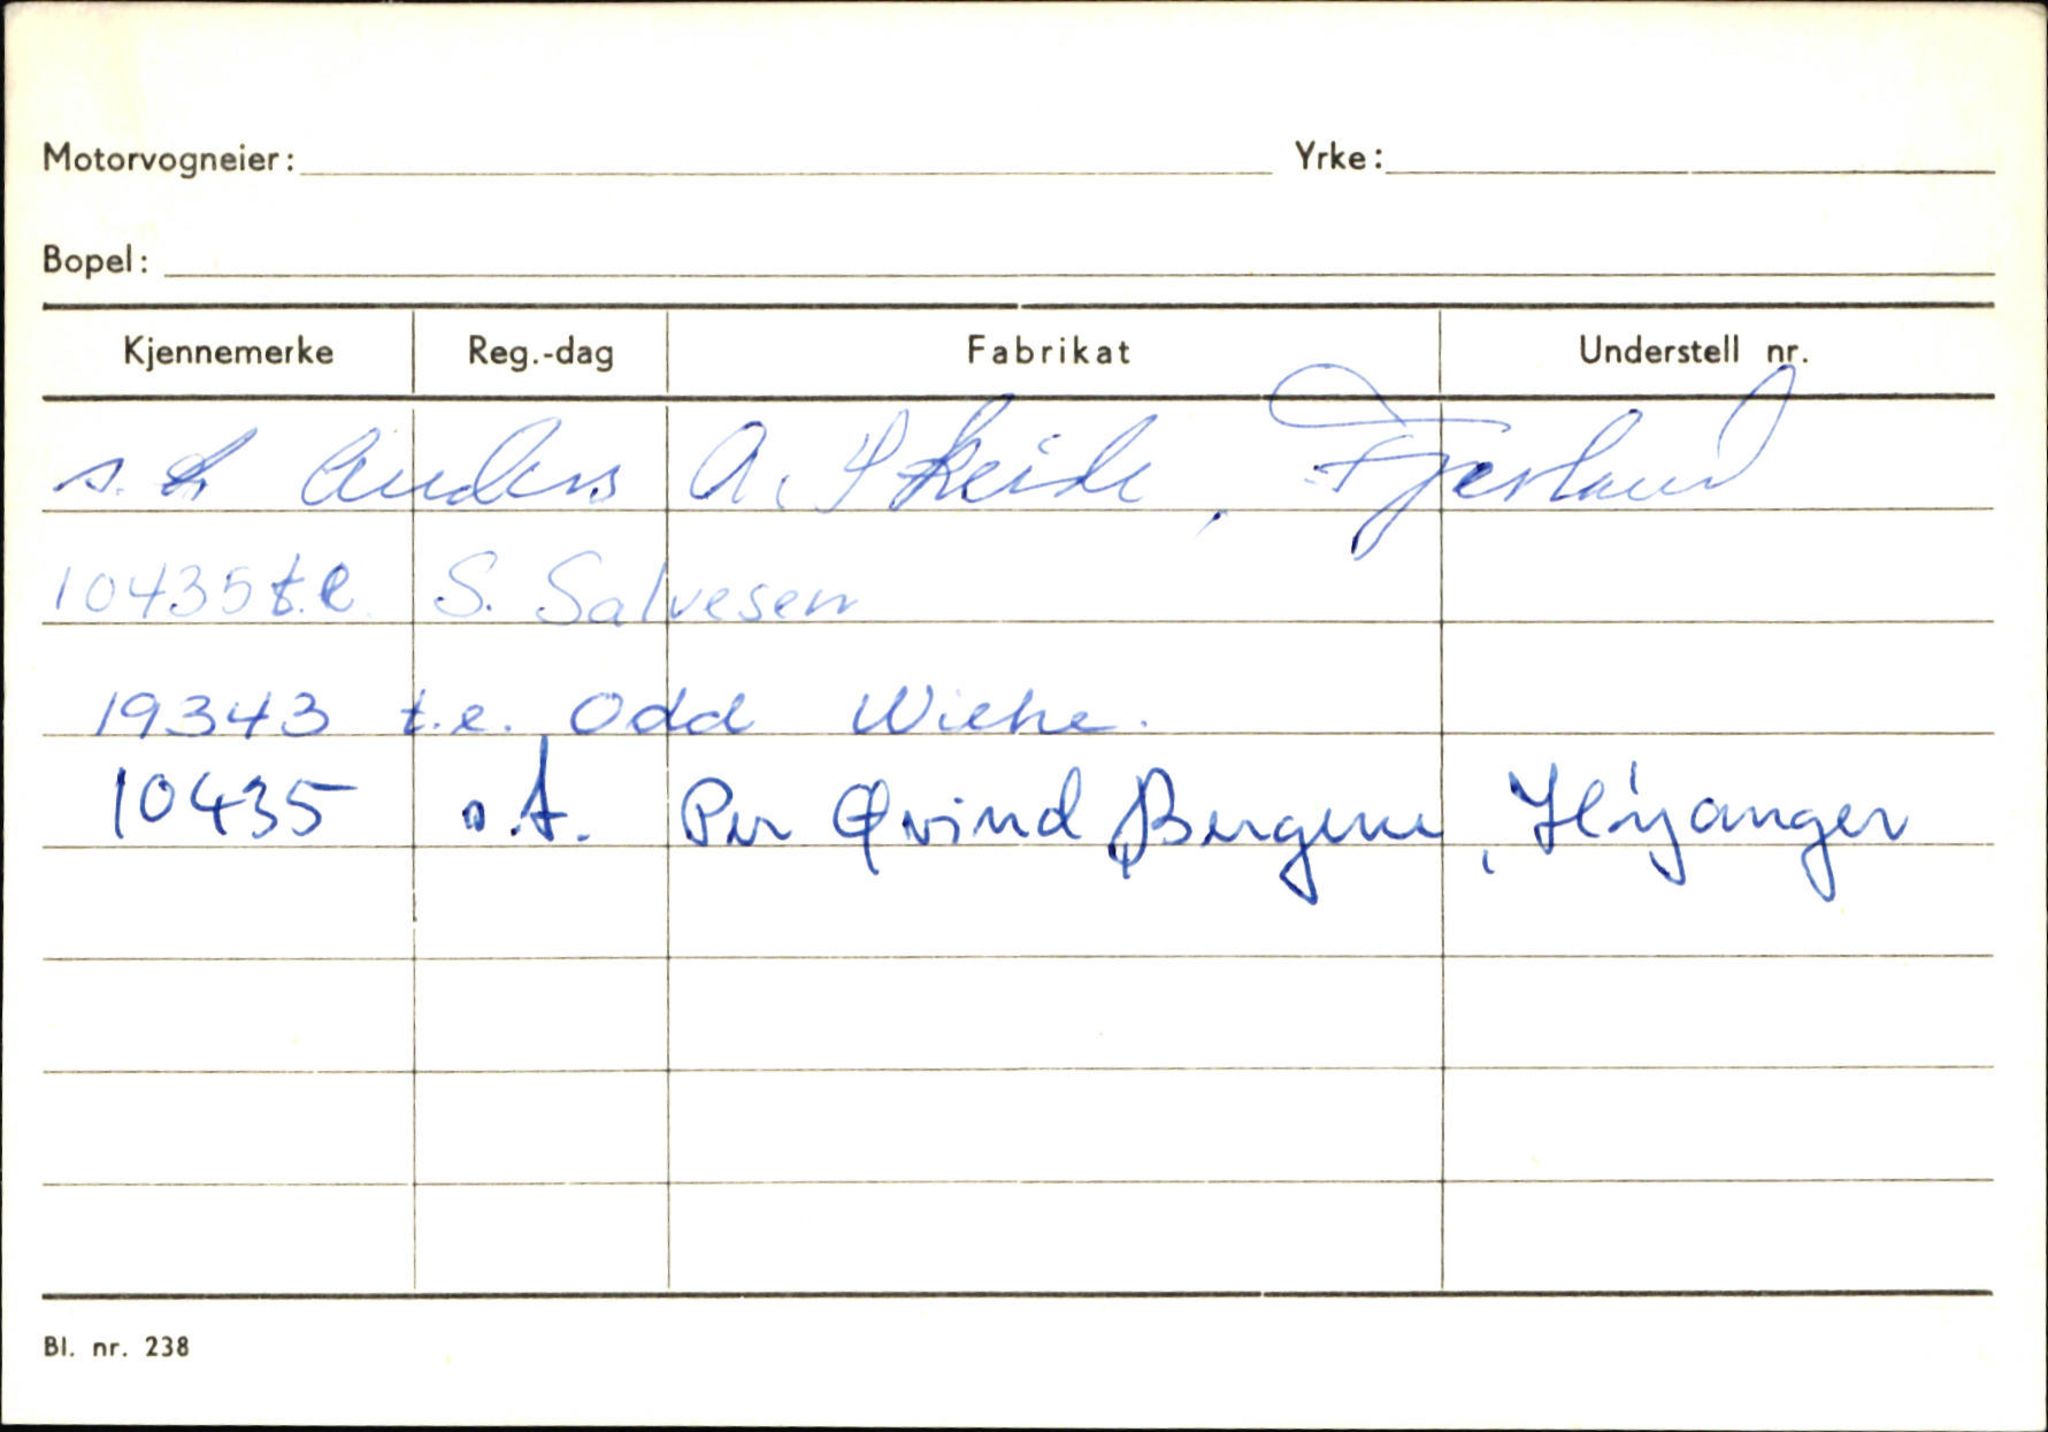 Motorvogneier: Yrke:
Bopel:
Kjennemerke Reg.-dag Fabrikat Understell nr.
s. t. Anders A. Skeide, Fjærland
10435 t.e. S. Salvesen
19343 t.e. Odd Wiehe.
10435 s.t. Per Øvind Bergene, Høyanger
Bl. nr. 238